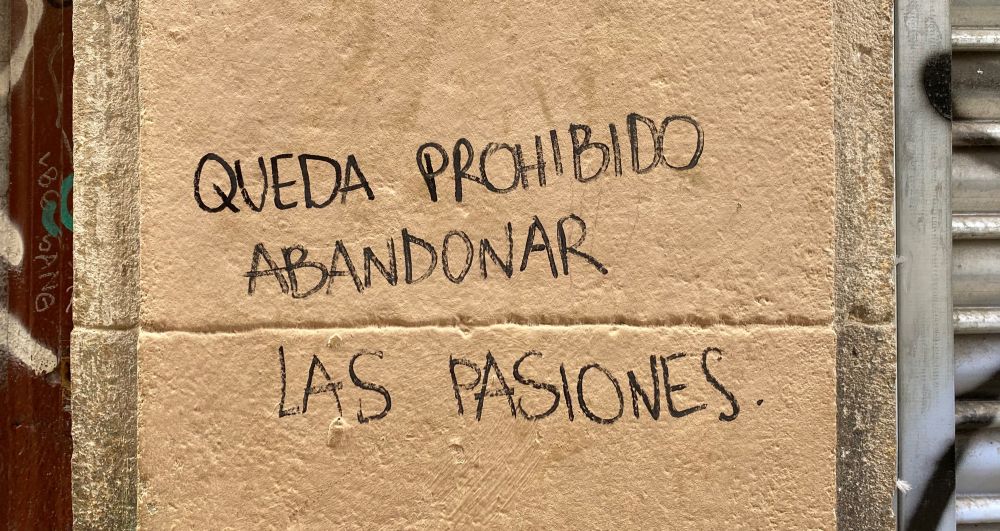 QUEDA PROHIBIDO
ABANDONAR
LAS PASIONES.